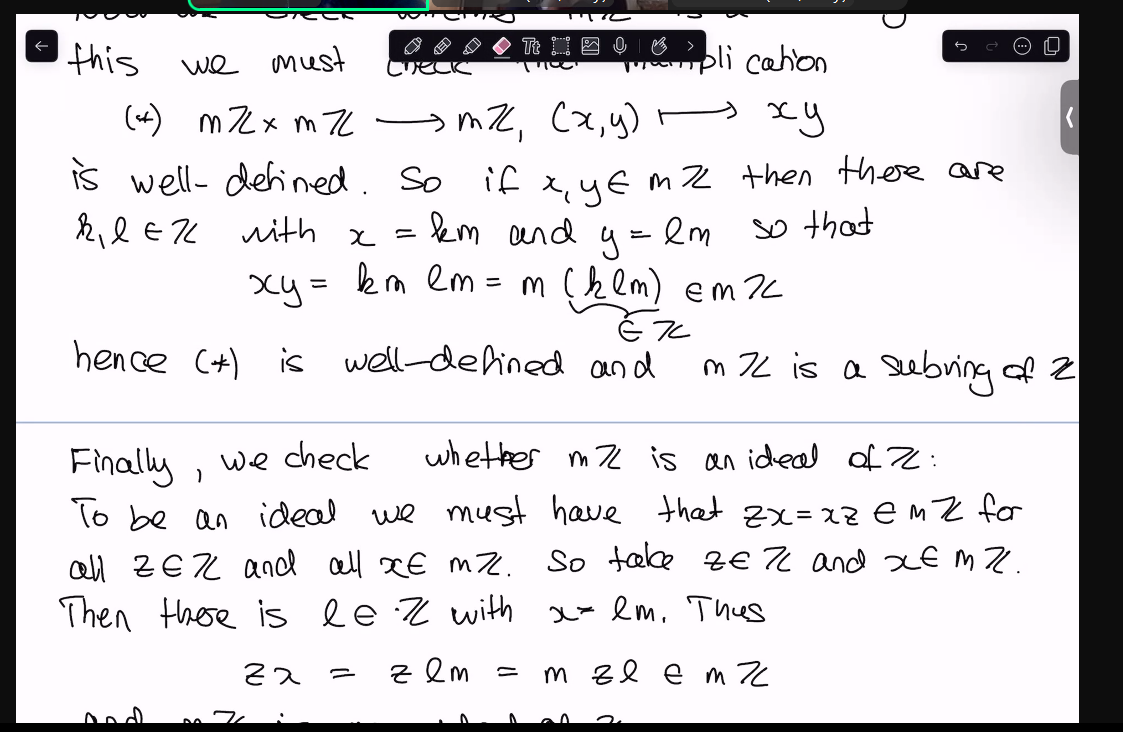 this we must check that multiplication
(*) mℤ × mℤ ⟶ mℤ, (x,y) ⟼ xy
is well-defined. So if x, y ∈ mℤ then there are
k, l ∈ ℤ with x = km and y = lm so that
xy = km lm = m (klm) ∈ mℤ
∈ ℤ
hence (*) is well-defined and mℤ is a subring of ℤ
Finally, we check whether mℤ is an ideal of ℤ:
To be an ideal we must have that zx = xz ∈ mℤ for
all z ∈ ℤ and all x ∈ mℤ. So take z ∈ ℤ and x ∈ mℤ.
Then there is l ∈ ℤ with x = lm. Thus
zx = z lm = m zl ∈ mℤ